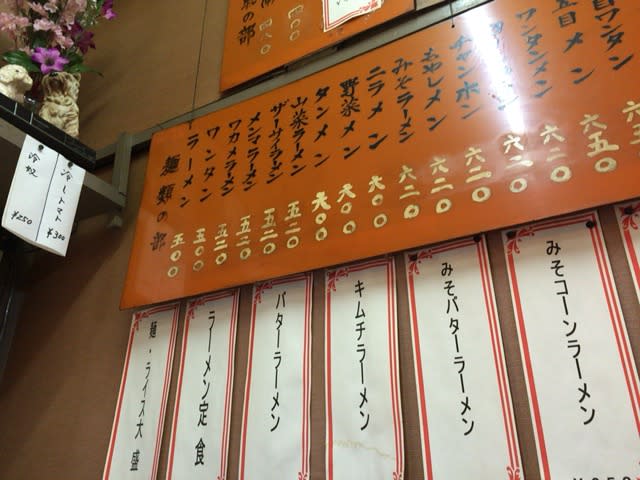 冷奴 ¥250
冷しトマト ¥300
麺類の部
ラーメン 五〇〇
ワンタン 五〇〇
ワカメラーメン 五二〇
メンマラーメン 五二〇
ザーサイラーメン 五二〇
山菜ラーメン 五二〇
タンメン 六〇〇
野菜メン 六〇〇
ニラメン 六〇〇
みそラーメン 六二〇
もやしメン 六二〇
チャンポン 六二〇
六二〇
ワンタンメン 六二〇
五目メン 六五〇
目ワンタン
麺・ライス大盛
ラーメン定食
バターラーメン
キムチラーメン
みそバターラーメン
みそコーンラーメン